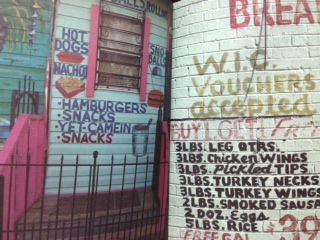 BALLS
HOT
DOGS
NACHO
SNO
BALL
·HAMBURGERS
·SNACKS
·YET-CAMEIN
·SNACKS
BREA
W.I.C.
VOUCHERS
accepted
BUY 1 GET 1 Fr
3LBS. LEG QTRS.
3LBS. Chicken WINGS
3LBS. Pickled TIPS
3LBS. TURKEY NECKS
3LBS. TURKEY WINGS
2LBS. SMOKED SAUSA
2 DOZ. Eggs
5LBS. RICE
$39